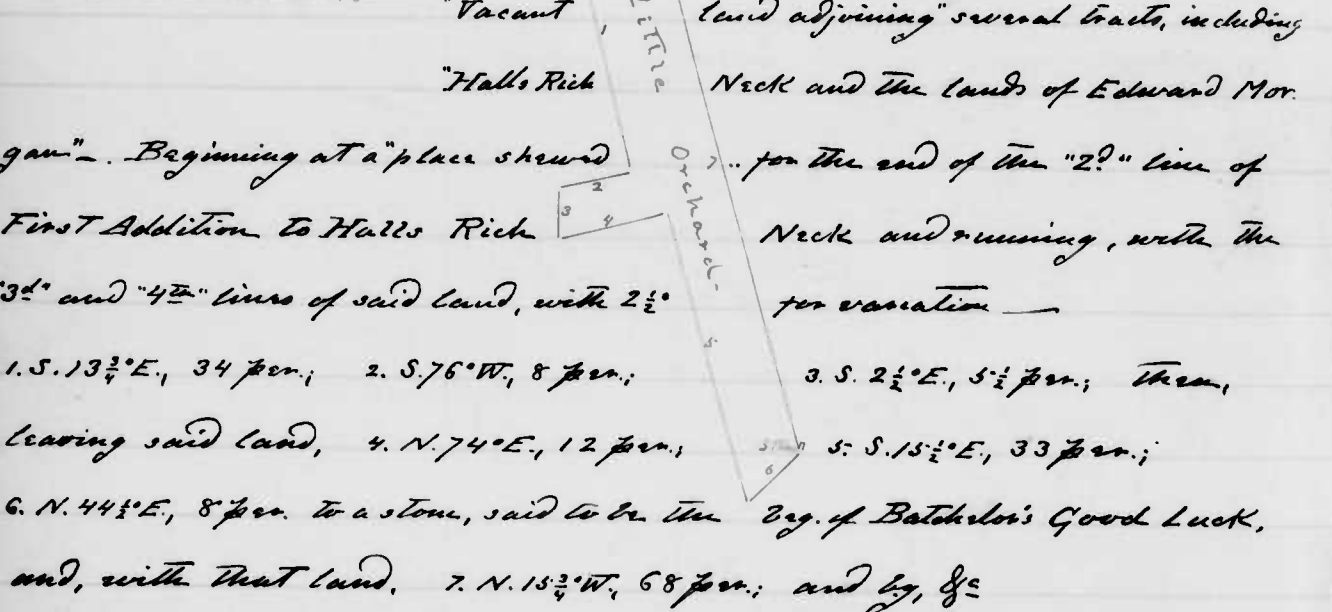 "Vacant land adjoining" several tracts, including
"Halls Rich Neck and the lands of Edward Mor.
gan"_. Beginning at a "place shewed for the end of the "2d" line of
First Addition to Halls Rich Neck and running, with the
"3d" and "4th" lines of said land, with 2½° for variation —
1. S. 13¾° E., 34 per.; 2. S. 76° W., 8 per.; 3. S. 2½° E., 5½ per.; then,
leaving said land, 4. N. 74° E., 12 per.; 5. S. 15½° E., 33 per.;
6. N. 44½° E., 8 per. to a stone, said to be the beg. of Batchelor's Good Luck,
and, with that land, 7. N. 15¾° W., 68 per.; and by, &c
Little Orchard.
2
3
4
7
5
6